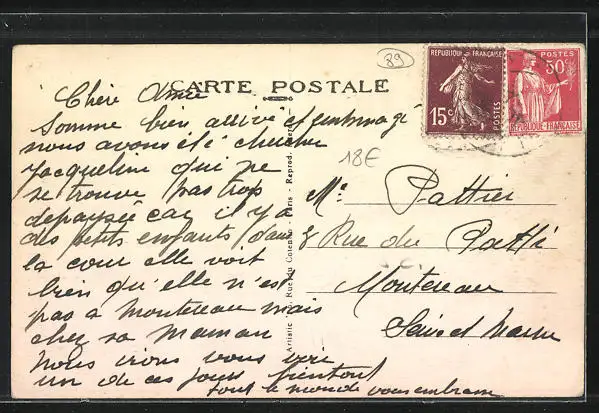 89
CARTE POSTALE
REPUBLIQUE FRANÇAISE
15c
POSTES
POSTES
50c
REPUBLIQUE FRANÇAISE
18E
Chère Amie
Somme bien arrivé et
nous avons été chercher
Jacqueline qui ne
se trouve pas trop
dépaysée car il y a
des petits enfants dans
la cour elle voit
bien qu'elle n'est
pas a Montereau mais
chez sa Maman
Nous irons vous voir
un de ces jours bientout
tout le monde vous embrasse
Rue du Cotentin - Paris - Reprod.
Me Pathier
8 Rue du
Montereau
Seine et Marne